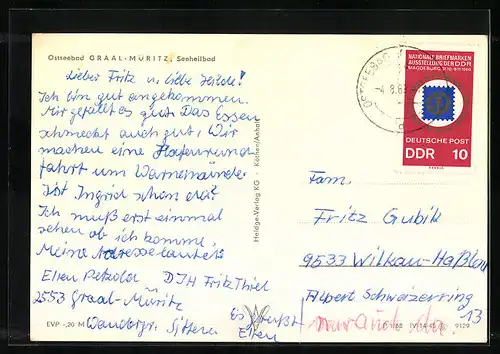 Ostseebad GRAAL-MÜRITZ, Seeheilbad
Lieber Fritz u. liebe Heide!
Ich bin gut angekommen.
Mir gefällt es gut. Das Essen
schmeckt auch gut. Wir
machen eine Hafenrund
fahrt um Warnemünde
Ist Ingrid schon da?
Ich muß erst einmal
sehen ob ich komme.
Meine Adresse lautet
Ellen Petzold DJH Fritz Thiel
2553 Graal-Müritz
Wandergr. Sittern
Es grüßt
Ellen
EVP -,20 M
Heldge-Verlag KG · Köthen/Anhalt
OSTSEEBAD
-4.8.69
NATIONALE BRIEFMARKEN
AUSSTELLUNG DER DDR
MAGDEBURG 31.10.-9.11.1969
DEUTSCHE POST
DDR 10
Fam.
Fritz Gubik
9533 Wilkau-Haßlau
Albert Schweizerring
13
IV/14-45
9129